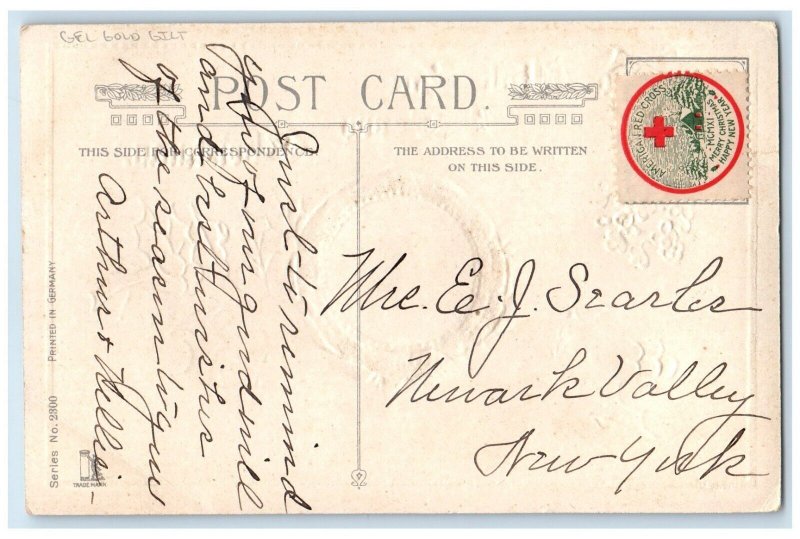 GEL GOLD GILT
POST CARD.
THIS SIDE FOR CORRESPONDENCE.
THE ADDRESS TO BE WRITTEN
ON THIS SIDE.
AMERICAN RED CROSS
MCMXI
MERRY CHRISTMAS
HAPPY NEW YEAR
Just to remind
you of our good will
and best wishes
of the season to you
Arthur & Nellie
Mrs. E. J. Searles
Newark Valley
New York
Series No. 2300 PRINTED IN GERMANY
TRADE MARK